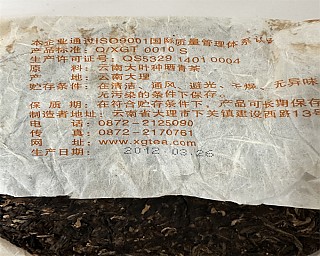 本企业通过ISO9001国际质量管理体系认
产品标准号：Q/XGT 0010 S
生产许可证号：QS5329 1401 0004
原　　料：云南大叶种晒青茶
产　　地：云南大理
贮存条件：在清洁、通风、避光、干燥、无异味
无污染的条件下保存。
保 质 期：在符合贮存条件下，产品可长期保存
制造者地址：云南省大理市下关镇建设西路13号
电　　话：0872-2125090
传　　真：0872-2170761
网　　址：www.xgtea.com
生产日期：2012.03.26